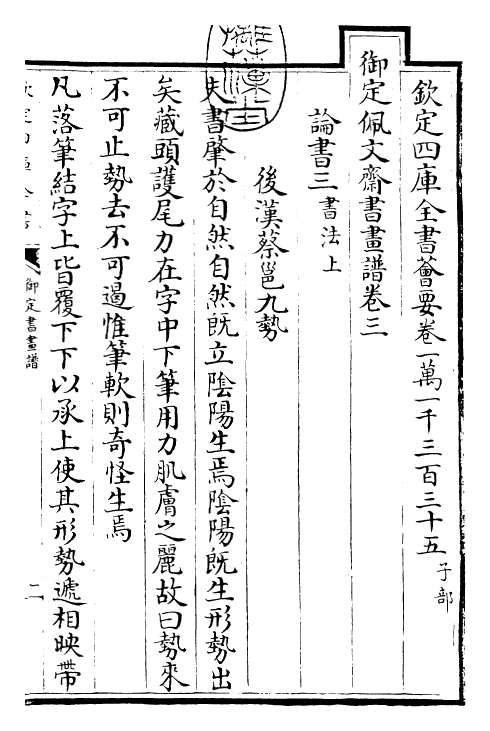 欽定四庫全書薈要卷一萬一千三百三十五 子部
御定佩文齋書畫譜卷三
論書三 書法上
後漢蔡邕九勢
夫書肇於自然自然既立陰陽生焉陰陽既生形勢出
矣藏頭護尾力在字中下筆用力肌膚之麗故曰勢來
不可止勢去不可遏惟筆軟則奇怪生焉
凡落筆結字上皆覆下下以承上使其形勢遞相映帶
御定書畫譜
二